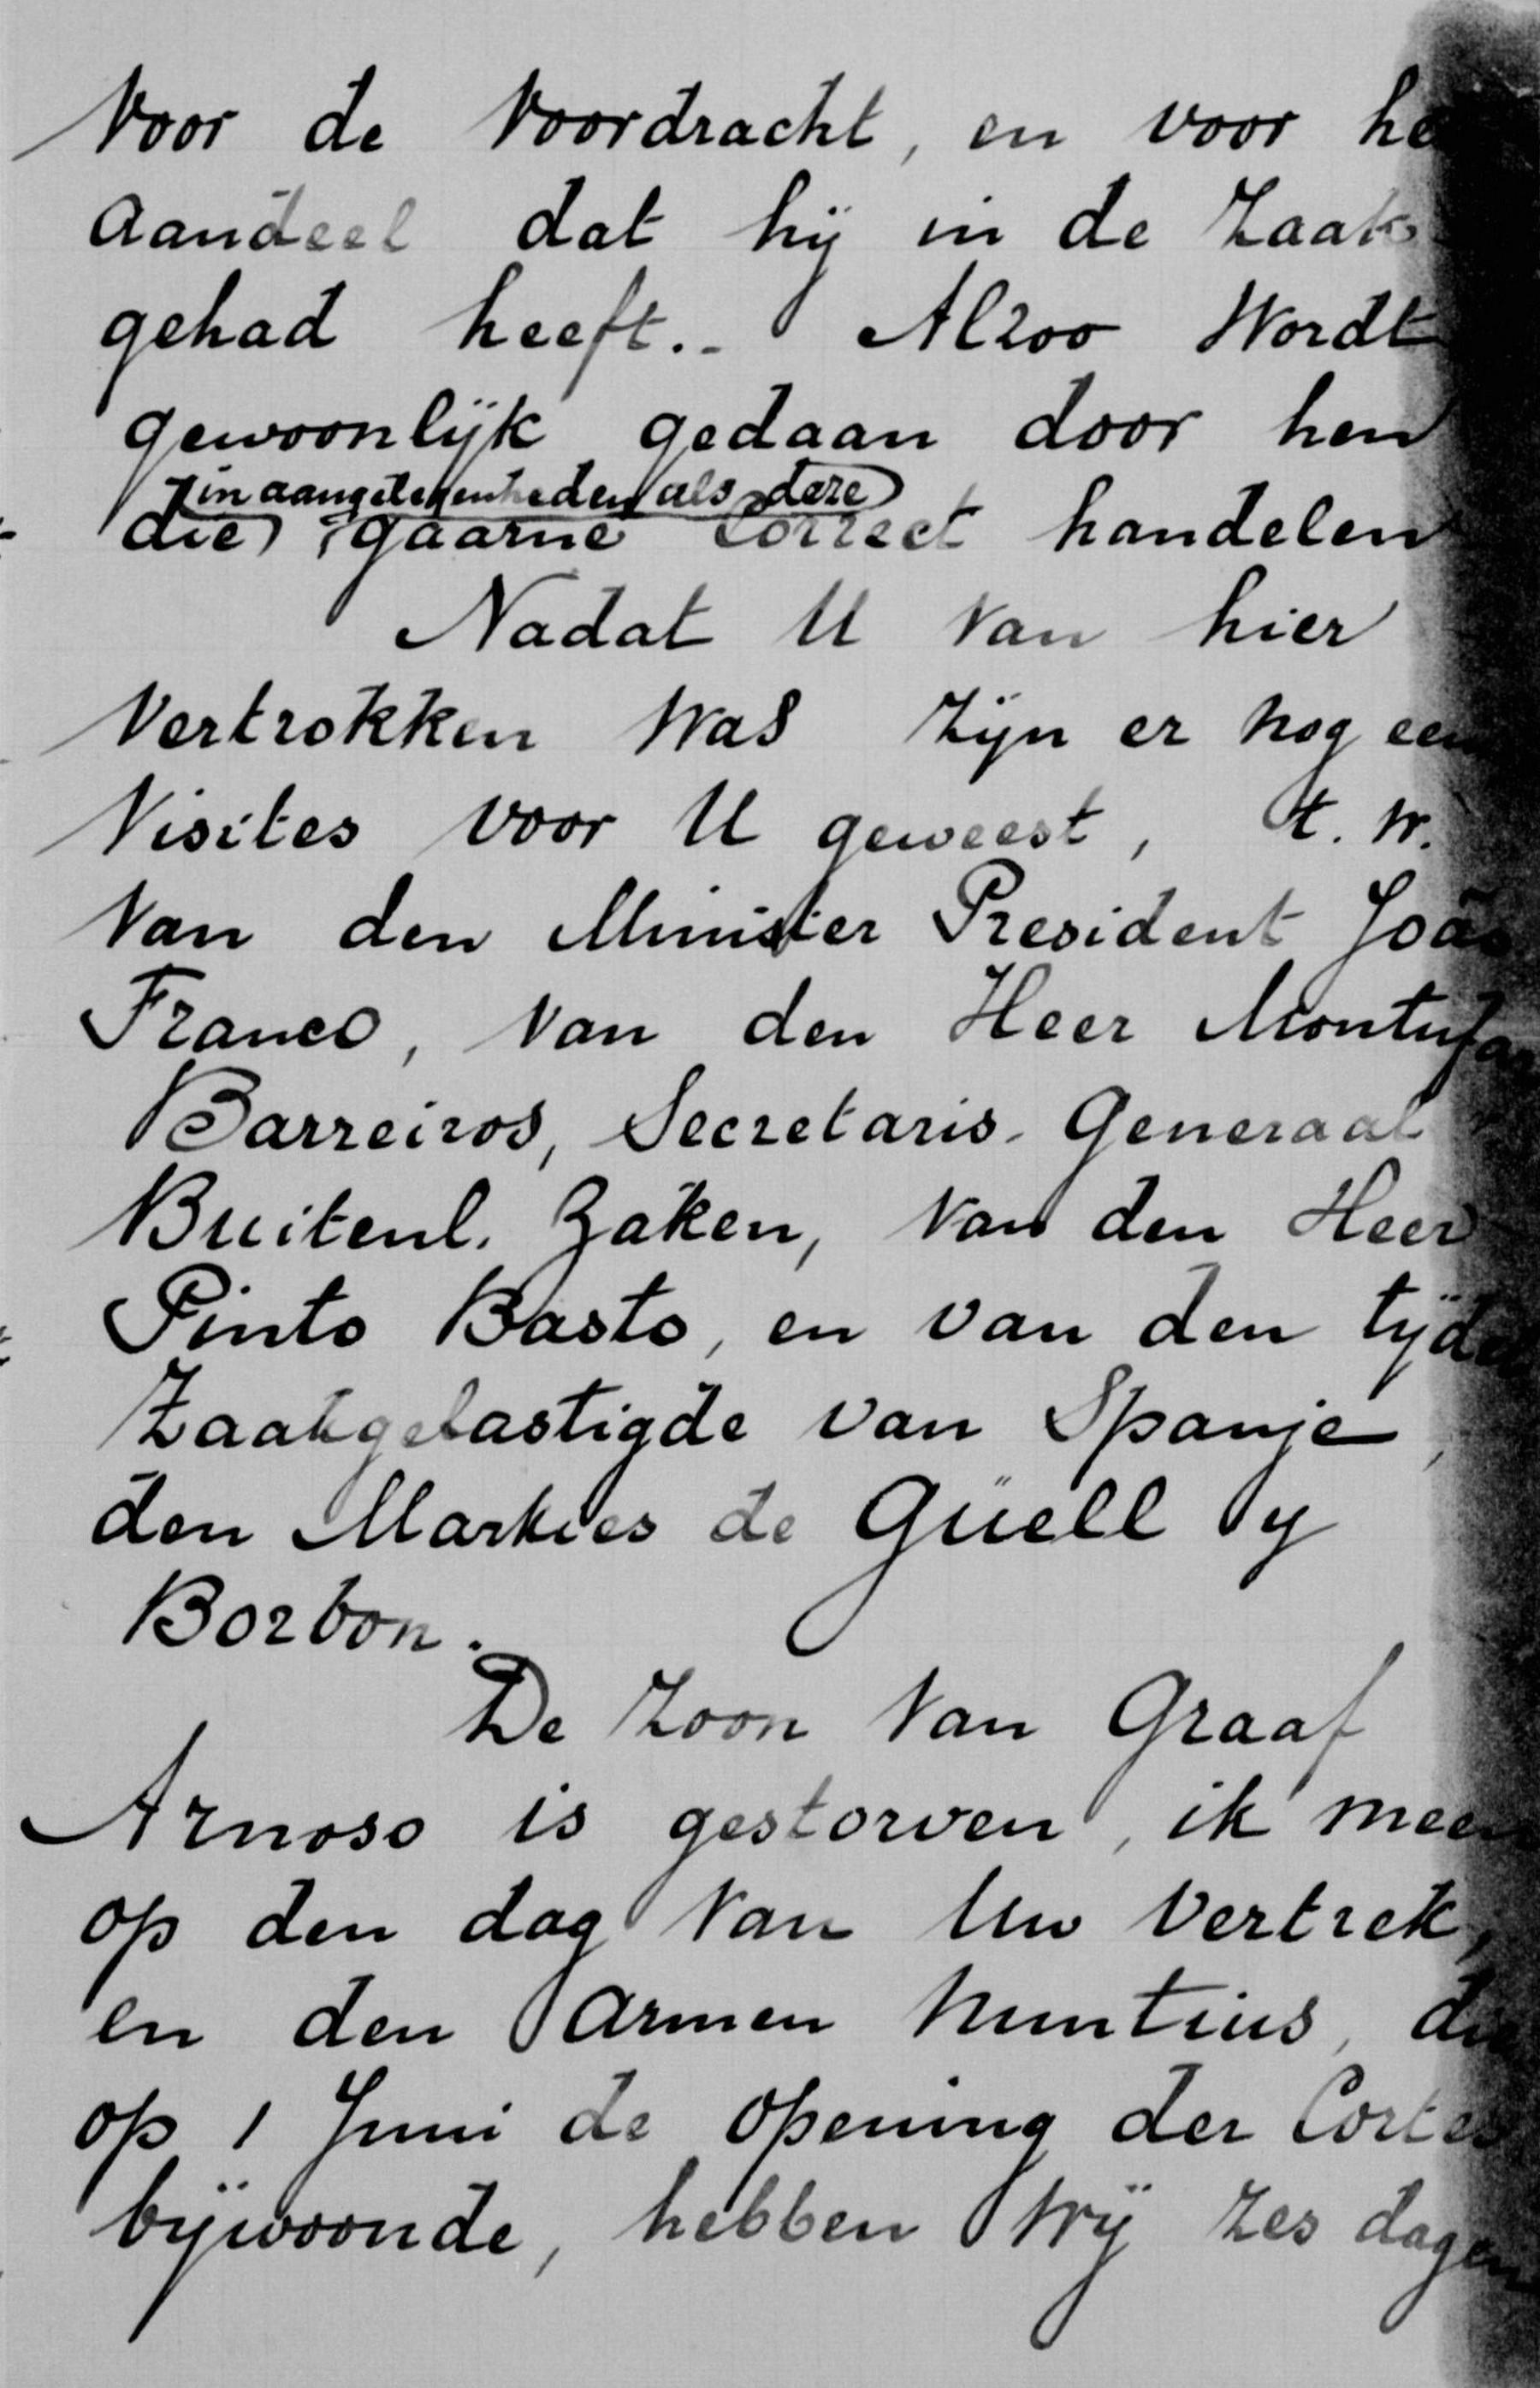 Voor de Voordracht, en voor he
aandeel dat hij in de Zaak
gehad heeft.. Alzoo Wordt
gewoonlijk gedaan door hen
in aangelegenheden als deze
die gaarne correct handelen
Nadat U van hier
Vertrokken was zijn er nog een
Visites voor U geweest, t. w.
Van den Minister President João
Franco, van den Heer Montufar
Barreiros, Secretaris-Generaal
Buitenl. Zaken, van den Heer
Pinto Basto, en van den tijde
Zaakgelastigde van Spanje,
den Markies de Güell y
Borbon.
De Zoon van Graaf
Arnoso is gestorven, ik meen
op den dag van Uw Vertrek,
en den armen Nuntius, die
op 1 Juni de opening der Cortes
bijwoonde, hebben wij zes dagen